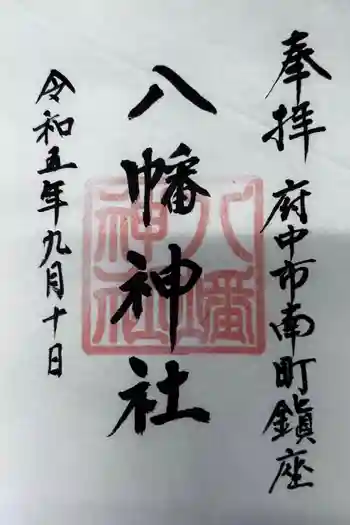 奉拝 府中市南町鎮座
八幡神社
令和五年九月十日
八幡
神社